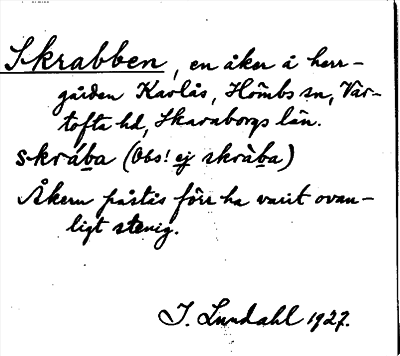 Skrabben, en åker å herr-
gården Karlås, Hömbs sn, Var-
tofta hd, Skaraborgs län.
skrába (Obs! ej skràba)
Åkern påstås förr ha varit ovan-
ligt stenig.
I. Lundahl 1927.